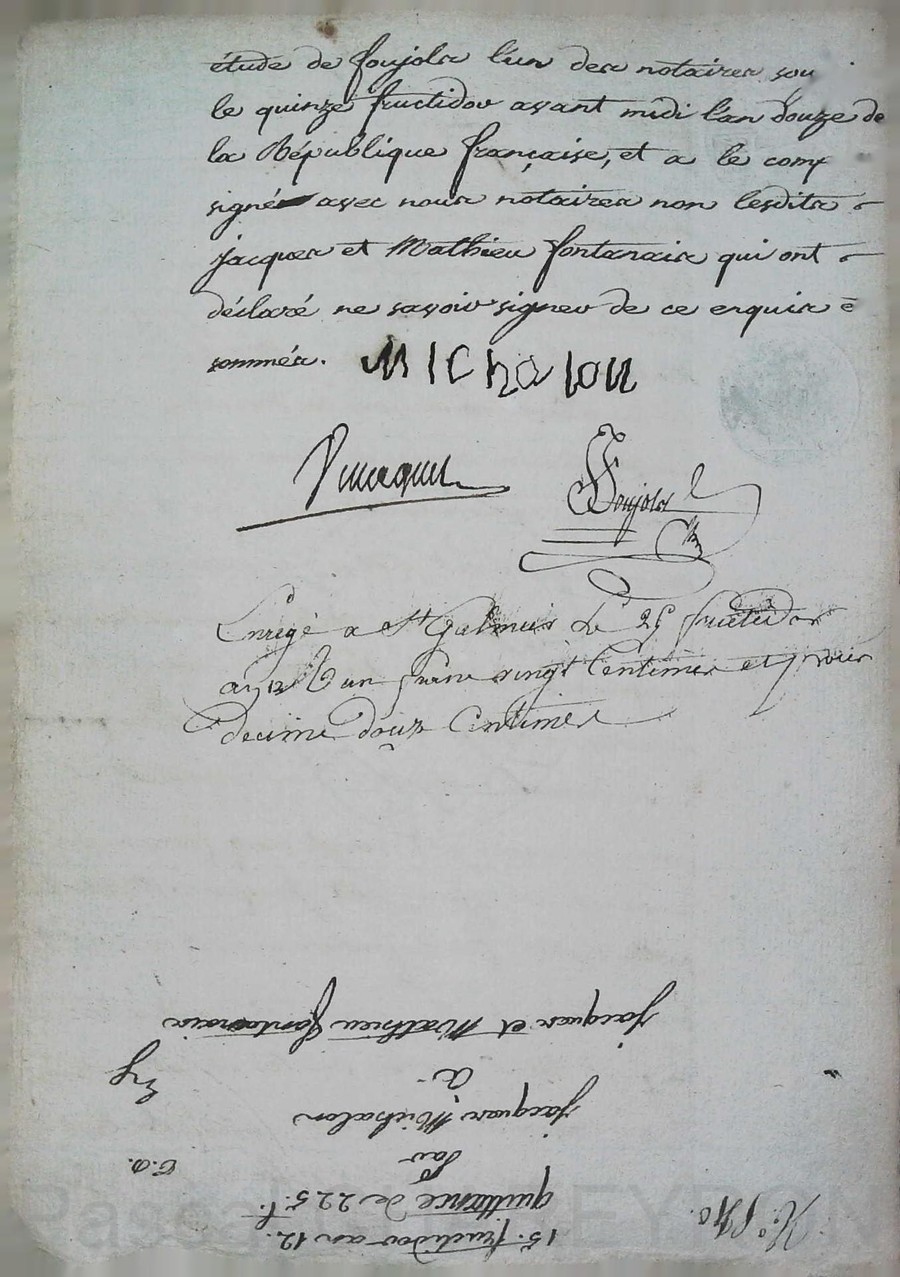 étude de foujols l'un des notaires sou
le quinze fructidor avant midi l'an douze de
la République française, et a le comp
signé avec nous notaires non lesdits
jacques et Mathieu fontanais qui ont
déclaré ne savoir signer de ce enquis è
sommés. MIChalon
foujols
Enregé a St Galmier Le 25 fructidor
an 12 R un franc vingt Centimes et pour
decime douze Centimes
15. fructidor an 12.
quittance de 225 f.
Par
jacques Michalon
à
jacques et Mathieu fontanais